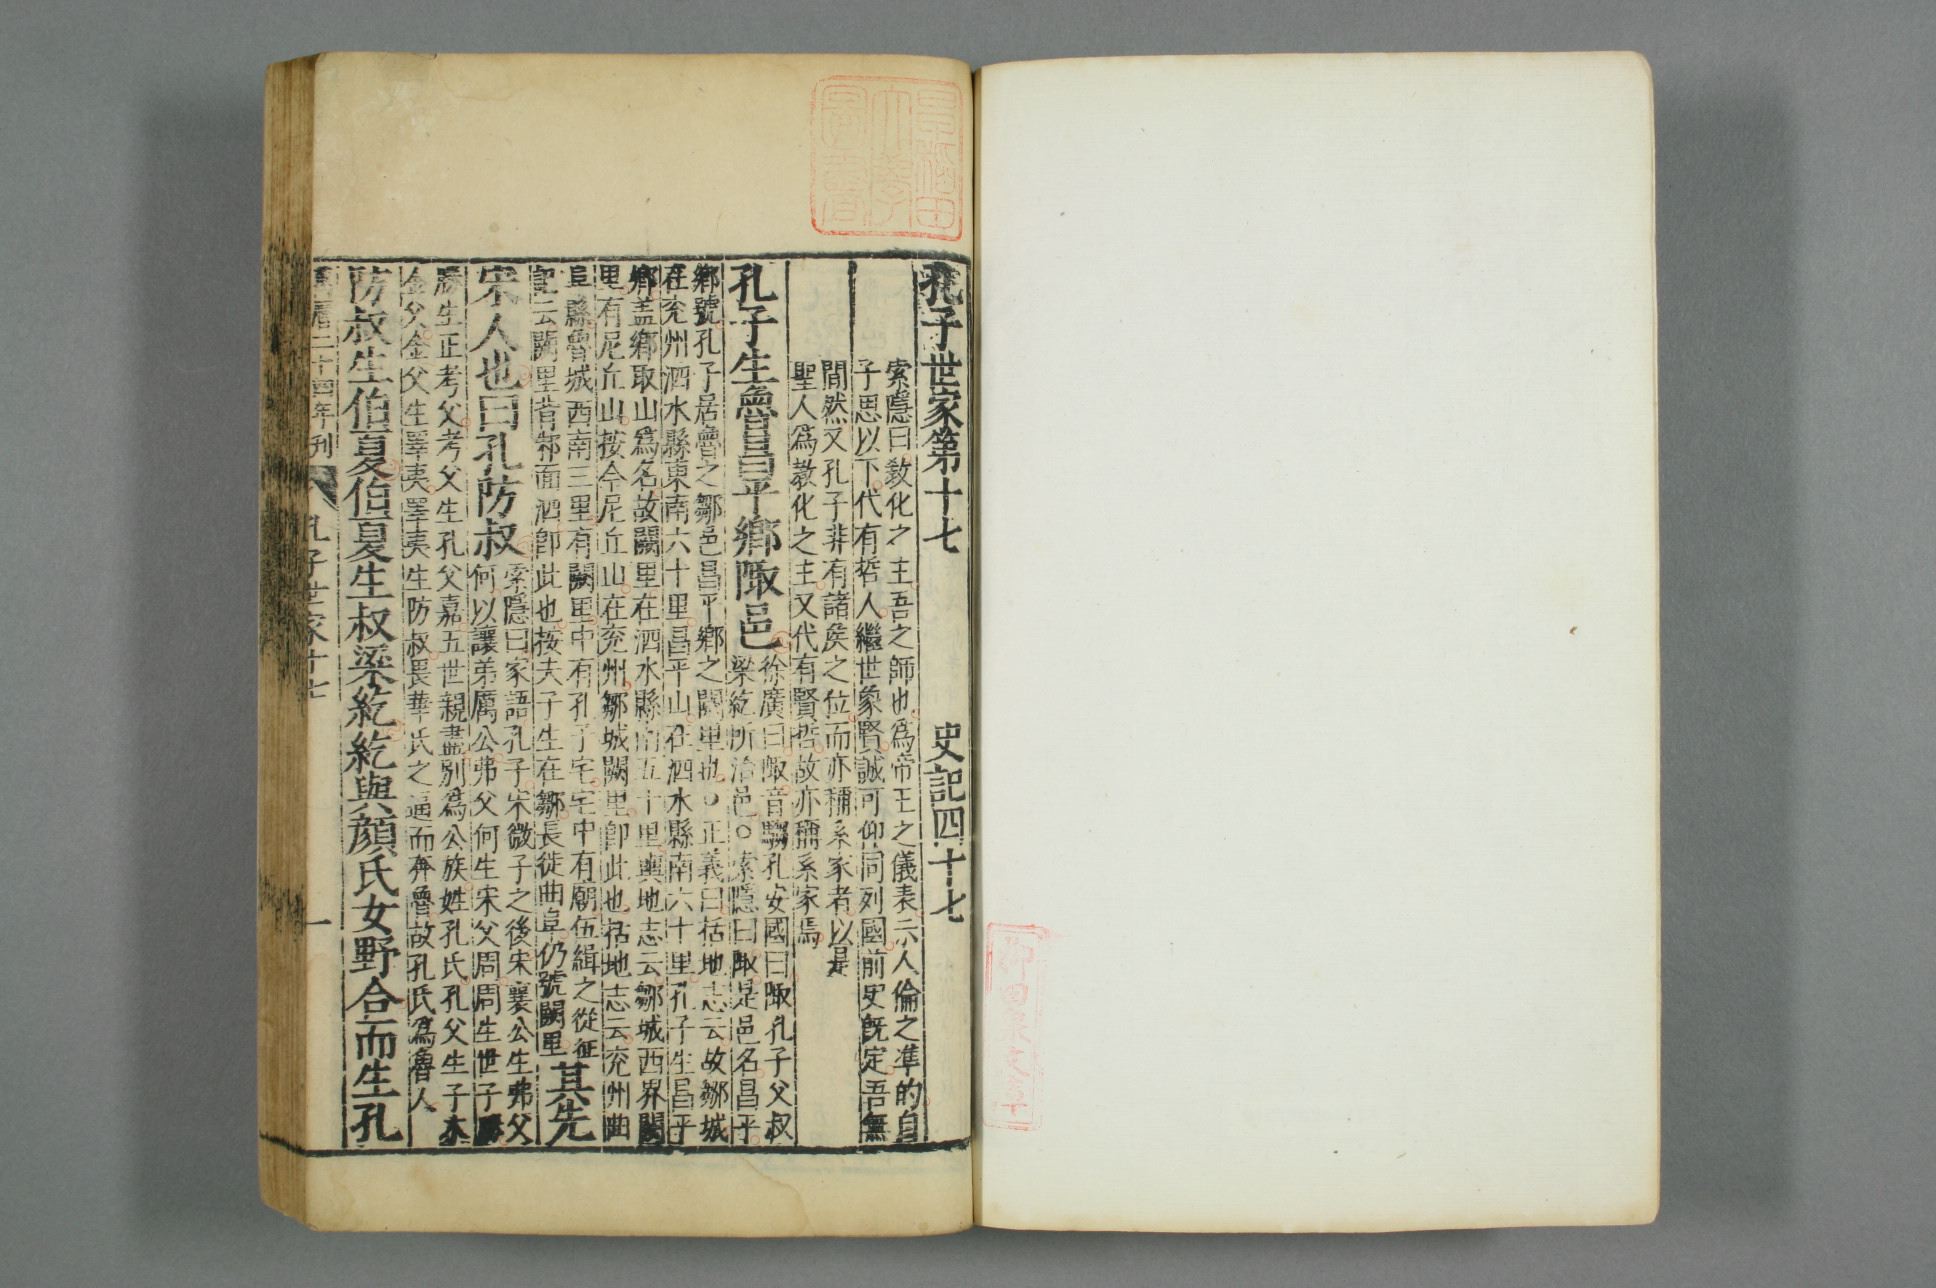 孔子世家第十七　史記四十七
索隱曰敎化之主吾之師也爲帝王之儀表示人倫之準的自
子思以下代有哲人繼世象賢誠可仰同列國前史旣定吾無
間然又孔子非有諸侯之位而亦稱系家者以是
聖人爲教化之主又代有賢哲故亦稱系家焉
孔子生魯昌平鄉陬邑
徐廣曰陬音騶孔安國曰陬孔子父叔
梁紇所治邑○索隱曰陬是邑名昌平
鄉號孔子居魯之鄒邑昌平鄉之闕里也○正義曰括地志云故鄒城
在兗州泗水縣東南六十里昌平山在泗水縣南六十里孔子生昌平
鄉盖鄉取山爲名故闕里在泗水縣南五十里輿地志云鄒城西界闕
里有尼丘山按今尼丘山在兗州鄒城闕里卽此也括地志云兗州曲
阜縣魯城西南三里有闕里中有孔子宅宅中有廟伍緝之從征
記云闕里背邾面泗卽此也按夫子生在鄒長徙曲阜仍號闕里
其先
宋人也曰孔防叔
索隱曰家語孔子宋微子之後宋襄公生弗父
何以讓弟厲公弗父何生宋父周周生世子勝
勝生正考父考父生孔父嘉五世親盡別爲公族姓孔氏孔父生子木
金父金父生睪夷睪夷生防叔畏華氏之逼而奔魯故孔氏爲魯人
防叔生伯夏伯夏生叔梁紇紇與顏氏女野合而生孔
萬曆二十四年刊　孔子世家十七　一